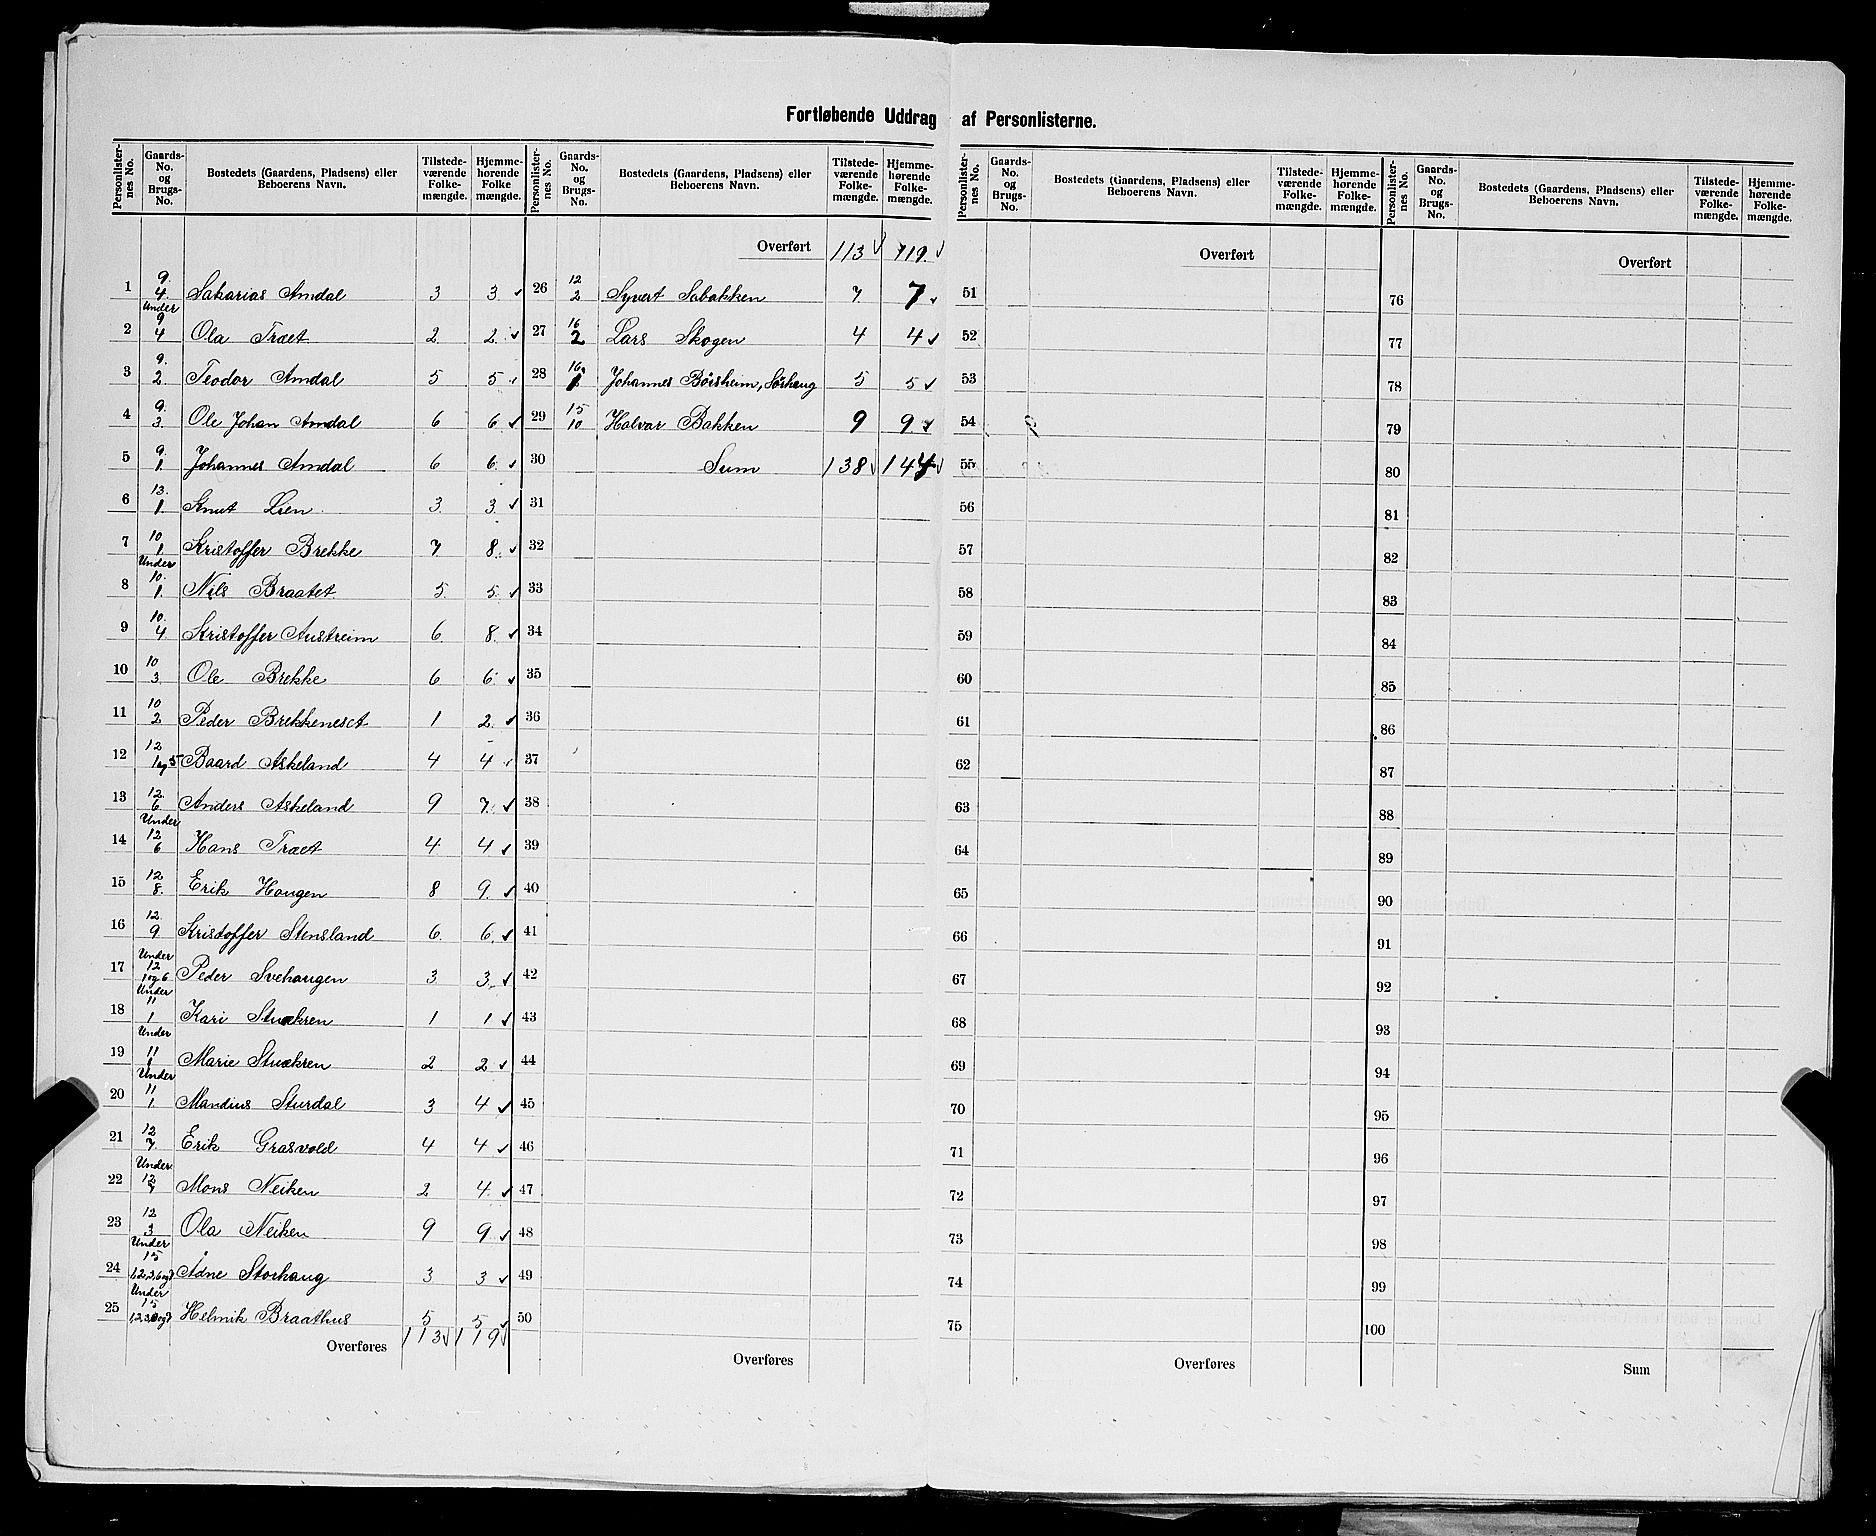 Fortløbende Uddrag af Personlisterne.
Personlister- nes No. Gaards- No. og Brugs- No. Bostedets (Gaardens, Pladsens) eller Beboerens Navn. Tilstede- værende Folke- mængde. Hjemme- hørende Folke mængde.
1 9. 4 Sakarias Amdal 3 3
2 Under 9 4 Ola Træet 2 2
3 9. 2 Teodor Amdal 5 5
4 9. 3. Ole Johan Amdal 6 6
5 9. 1. Johannes Amdal 6 6
6 13. 1. Knut Lien 3. 3
7 10. 1 Kristoffer Brekke 7 8.
8 Under 10. 1. Nils Braatet 5. 5.
9 10. 4 Kristoffer Austreim 6. 8.
10 10 3. Ole Brekke 6 6.
11 10 2 Peder Brekkeneset 1 2.
12 12 1 og 5 Baard Askeland 4 4
13 12. 6. Anders Askeland 9 7.
14 Under 12 6 Hans Træet 4. 4
15 12 8. Erik Haugen 8 9.
16 12. 9 Kristoffer Stensland 6. 6.
17 Under 12 1 og 6 Peder Svehaugen 3 3.
18 Under 11 1 Kari Stuekren 1 1
19 Under 11 1 Marie Stuekren 2 2
20 Under 11 1. Mandius Sturdal 3 4
21 12 7. Erik Grasvold 4 4
22 Under 12 7 Mons Neiken 2 4.
23 12 3 Ola Neiken 9 9
24 Under 15 1,2,3,6 og 7 Ådne Storhaug 3 3
25 Under 15 1,2,3,6 og 7 Helmik Braathus 5 5
Overføres 113 119
Personlister- nes No. Gaards- No. og Brugs- No. Bostedets (Gaardens, Pladsens) eller Beboerens Navn. Tilstede- værende Folke- mængde. Hjemme- hørende Folke- mængde.
Overført 113 119.
26 12 2 Syvert Sabakken 7 7
27 16 2 Lars Skogen 4 4
28 16 1 Johannes Börsheim, Sörhaug 5 5
29 15 10 Halvar Bakken 9 9.
30 Sum 138 144
31
32
33
34
35
36
37
38
39
40
41
42
43
44
45
46
47
48
49
50
Overføres
Personlister- nes No. Gaards- No. og Brugs- No. Bostedets (Gaardens, Pladsens) eller Beboerens Navn. Tilstede- værende Folke- mængde. Hjemme- hørende Folke- mængde.
Overført
51
52
53
54
55
56
57
58
59
60
61
62
63
64
65
66
67
68
69
70
71
72
73
74
75
Overføres
Personlister- nes No. Gaards- No. og Brugs- No. Bostedets (Gaardens, Pladsens) eller Beboerens Navn. Tilstede- værende Folke- mængde. Hjemme- hørende Folke- mængde.
Overført
76
77
78
79
80
81
82
83
84
85
86
87
88
89
90
91
92
93
94
95
96
97
98
99
100
Sum